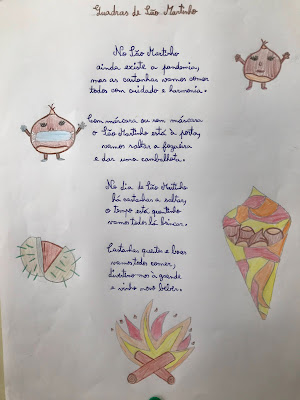 Quadras de São Martinho
No São Martinho
ainda existe a pandemia,
mas as castanhas vamos comer
todos com cuidado e harmonia.
Com máscara ou sem máscara
o São Martinho está à porta,
vamos saltar a fogueira
e dar uma cambalhota.
No dia de São Martinho
há castanhas a saltar,
o tempo está quentinho
vamos todos lá brincar.
Castanhas quentes e boas
vamos todos comer,
divertimo-nos à grande
e vinho novo beber.